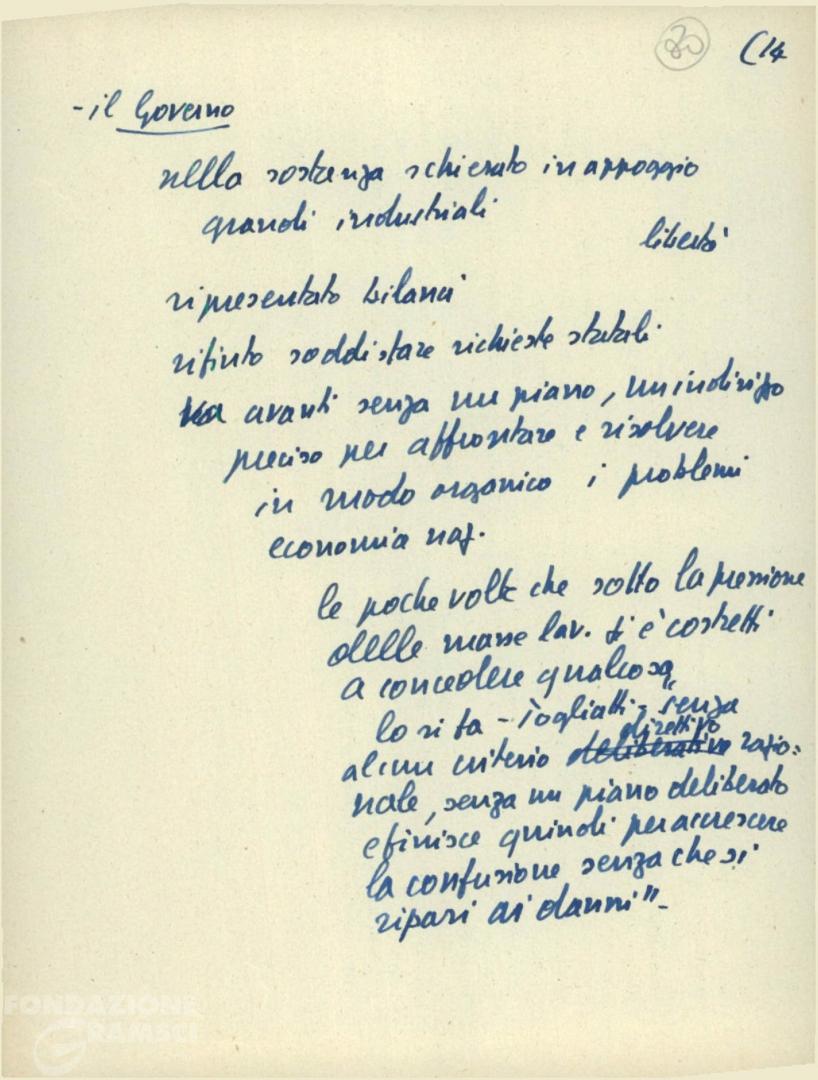 80 (14
- il Governo
nella sostanza schierato in appoggio
grandi industriali
libertà
ripresentato bilanci
rifiuto soddisfare richieste statali
va avanti senza un piano, un indirizzo
preciso per affrontare e risolvere
in modo organico i problemi
economia naz.
le poche volte che sotto la pressione
delle masse lav. si è costretti
a concedere qualcosa
lo si fa - Togliatti - "senza
direttivo
alcun criterio deliberativo razio=
nale, senza un piano deliberato
e finisce quindi per accrescere
la confusione senza che si
ripari ai danni" -
FONDAZIONE
GRAMSCI